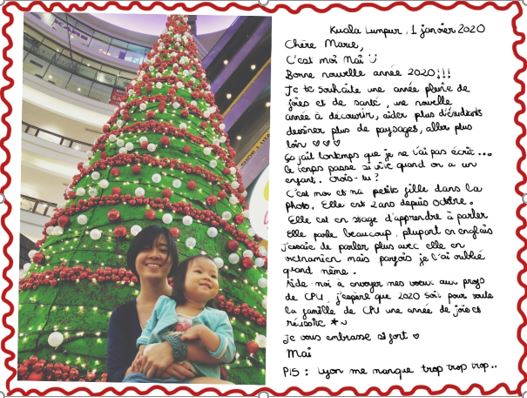 Kuala Lumpur, 1 janvier 2020
Chère Marie,
C'est moi Mai
Bonne nouvelle année 2020!!!
Je te souhaite une année pleine de
joies et de santé, une nouvelle
année à découvrir, aider plus d'étudiants
dessiner plus de paysages, aller plus
loin ♡♡♡
Ça fait longtemps que je ne t'ai pas écrit....
le temps passe si vite quand on a un
enfant. Crois-tu?
C'est moi et ma petite fille dans la
photo. Elle ent 2 ans depuis octobre.
Elle est en stage d'apprendre à parler
Elle parle beaucoup, plupart en anglais
J'essaie de parler plus avec elle en
vietnamien mais parfois je l'ai oublié
quand même.
Aide-moi à envoyer mes voeux aux profs
de CPU, j'espère que 2020 soit pour toute
la famille de CPU une année de joie et
réussite
Je vous embrasse si fort ♡
Mai
P/S : Lyon me manque trop trop trop..